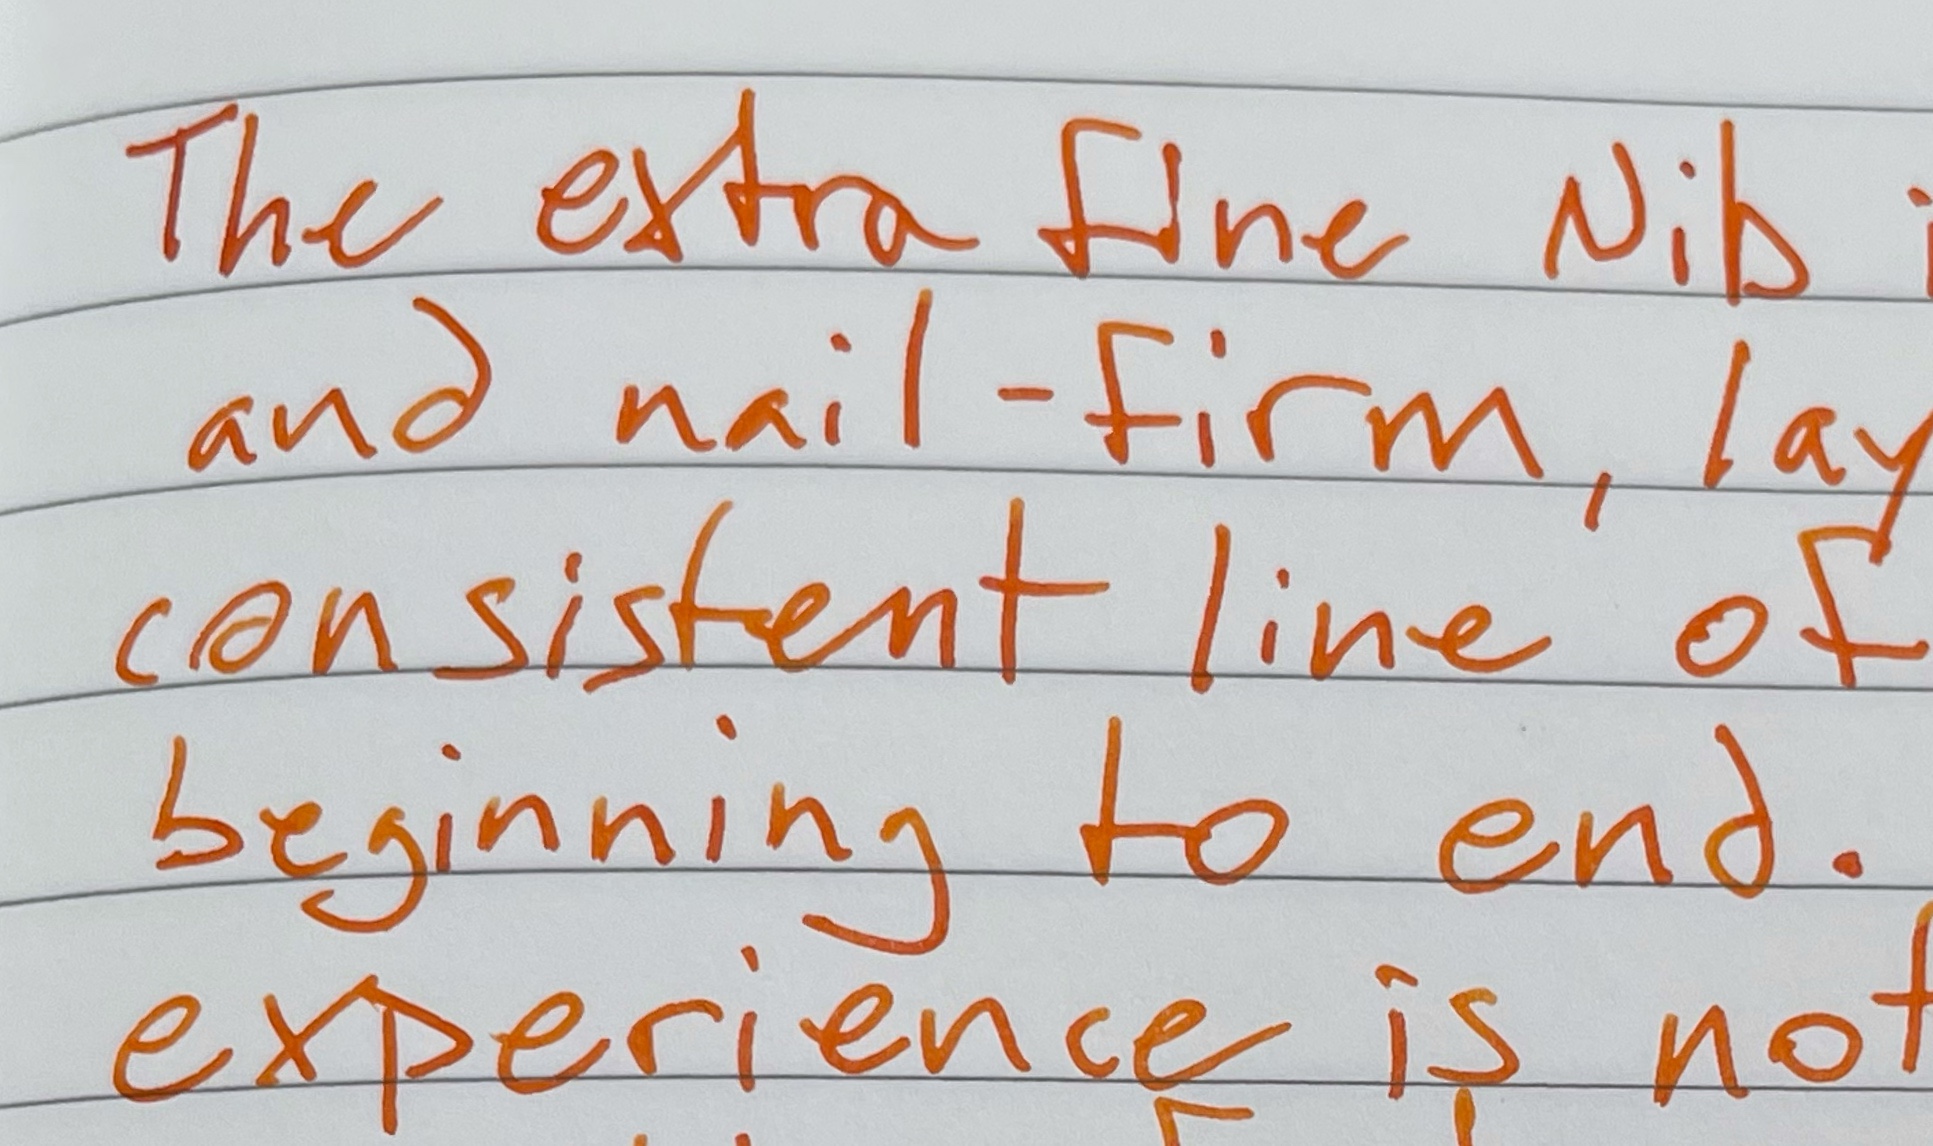 The extra fine Nib i
and nail-firm, lay
consistent line of
beginning to end.
experience is not